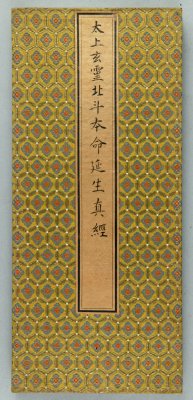 太上玄靈北斗本命延生真經